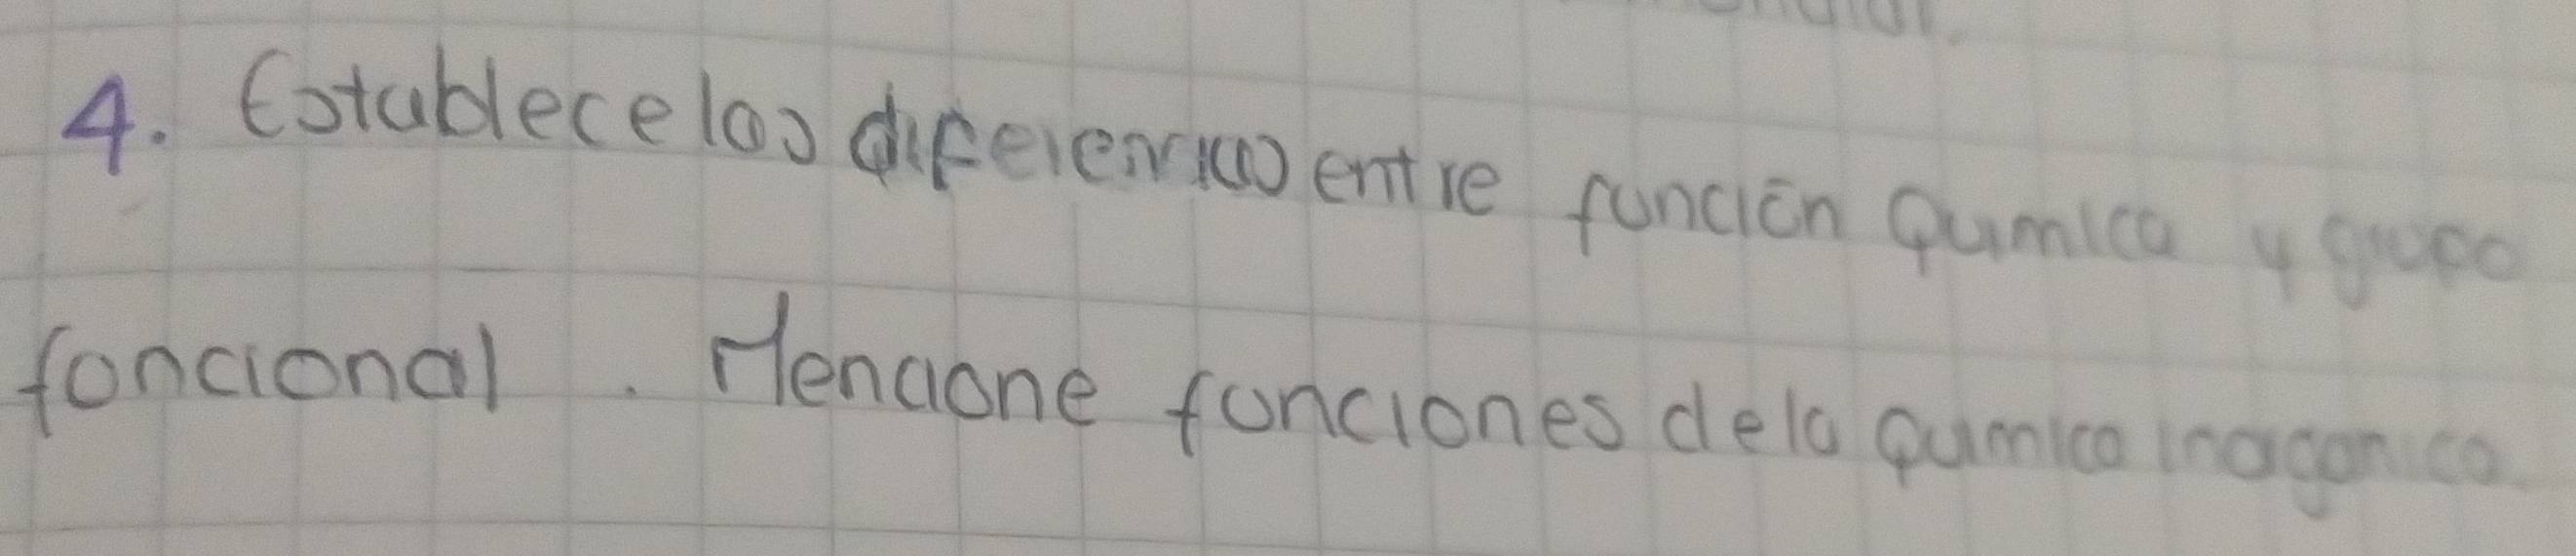 4. Establece las diferencias entre función Quimica y grupo
foncional. Mencione funciones de la Quimica inaganica